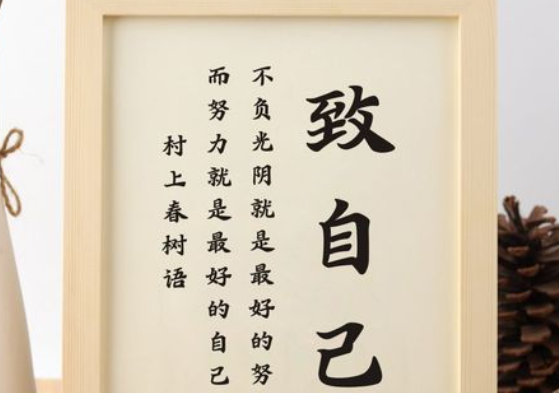 致自己
不负光阴就是最好的努
而努力就是最好的自己
村上春树语